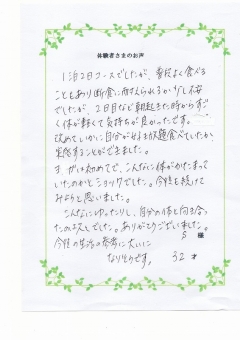 体験者さまのお声
1泊2日コースでしたが、普段よく食べる
こともあり断食に耐えられるか少し不安
でしたが、2日目など朝起きた時からすご
く体が軽くて気持ちが良かったです。
改めていかに自分が好き放題食べていたか
実感することができました。
ヨガは初めてで、こんなに体がかたまって
いたのかとショックでした。今後も続けて
みようと思いました。
こんなにゆったりし、自分の体と向き合っ
たのは久々でした。ありがとうございました。
今後の生活の参考に大いに
なりそうです。
S 様
32 才